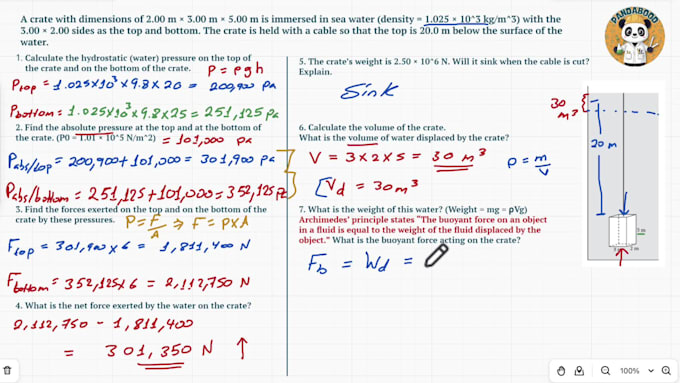 A crate with dimensions of 2.00 m × 3.00 m × 5.00 m is immersed in sea water (density = 1.025 × 10^3 kg/m^3) with the
3.00 × 2.00 sides as the top and bottom. The crate is held with a cable so that the top is 20.0 m below the surface of the
water.
1. Calculate the hydrostatic (water) pressure on the top of
the crate and on the bottom of the crate. P = ρgh
Ptop = 1.025×10³ × 9.8 × 20 = 200,900 Pa
Pbottom = 1.025×10³ × 9.8 × 25 = 251,125 Pa
2. Find the absolute pressure at the top and at the bottom of
the crate. (P0 = 1.01 × 10^5 N/m^2) = 101,000 Pa
Pabs/top = 200,900 + 101,000 = 301,900 Pa
Pabs/bottom = 251,125 + 101,000 = 352,125 Pa
3. Find the forces exerted on the top and on the bottom of the
crate by these pressures. P = F/A ⇒ F = P×A
Ftop = 301,900 × 6 = 1,811,400 N
Fbottom = 352,125 × 6 = 2,112,750 N
4. What is the net force exerted by the water on the crate?
2,112,750 - 1,811,400
= 301,350 N ↑
5. The crate's weight is 2.50 × 10^6 N. Will it sink when the cable is cut?
Explain.
Sink
6. Calculate the volume of the crate.
What is the volume of water displaced by the crate?
V = 3×2×5 = 30 m³
ρ = m/V
[Vd = 30m³
7. What is the weight of this water? (Weight = mg = ρVg)
Archimedes' principle states "The buoyant force on an object
in a fluid is equal to the weight of the fluid displaced by the
object." What is the buoyant force acting on the crate?
Fb = Wd =
PANDABOOD
30 m³
20 m
2 m
100%